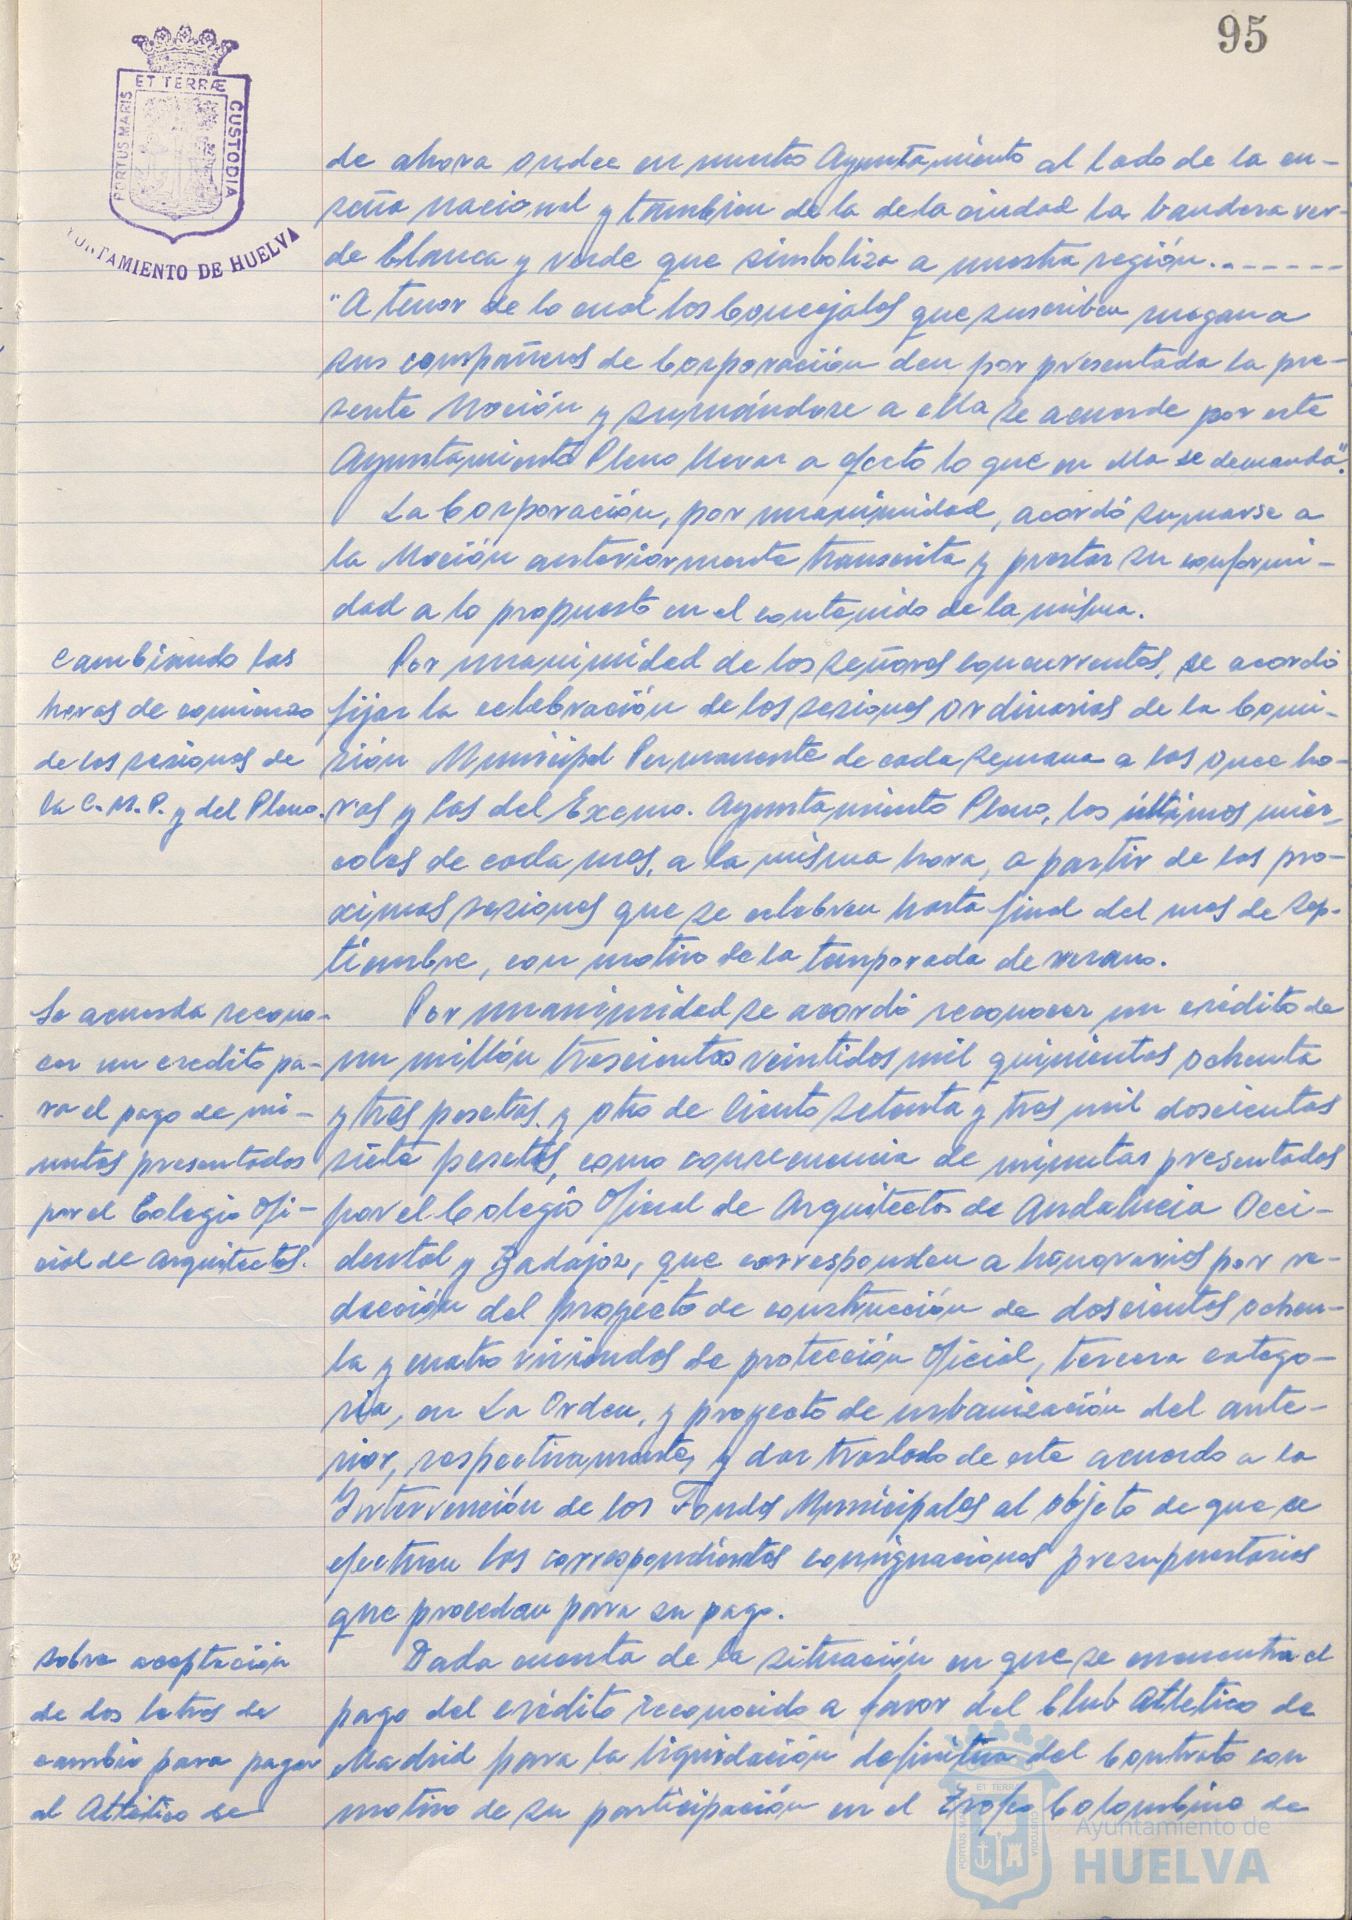 95
ET TERRÆ
PORTUS MARIS
CUSTODIA
AYUNTAMIENTO DE HUELVA
de ahora ondee en nuestro Ayuntamiento al lado de la en-
seña nacional y tambien de la de la ciudad la bandera ver-
de blanca y verde que simboliza a nuestra región.------
"A tenor de lo cual los Concejales que suscriben ruegan a
sus compañeros de Corporación den por presentada la pre-
sente Moción y sumándose a ella se acuerde por este
Ayuntamiento Pleno llevar a efecto lo que en ella se demanda".
La Corporación, por unanimidad, acordó sumarse a
la Moción anteriormente transcrita y prestar su conformi-
dad a lo propuesto en el contenido de la misma.
Cambiando las
horas de comienzo
de las sesiones de
la C.M.P. y del Pleno.
Por unanimidad de los señores concurrentes, se acordó
fijar la celebración de las sesiones ordinarias de la Comi-
sión Municipal Permanente de cada semana a las once ho-
ras y las del Excmo. Ayuntamiento Pleno, los últimos miér-
coles de cada mes, a la misma hora, a partir de las pro-
ximas sesiones que se celebren hasta final del mes de Sep-
tiembre, con motivo de la temporada de verano.
Se acuerda recono-
cer un credito pa-
ra el pago de mi-
nutas presentadas
por el Colegio Ofi-
cial de Arquitectos.
Por unanimidad se acordó reconocer un crédito de
un millón trescientas veintidos mil quinientas ochenta
y tres pesetas y otro de ciento setenta y tres mil doscientas
siete pesetas, como consecuencia de minutas presentadas
por el Colegio Oficial de Arquitectos de Andalucia Occi-
dental y Badajoz, que corresponden a honorarios por re-
dacción del proyecto de construcción de doscientas ochen-
ta y cuatro viviendas de protección Oficial, tercera catego-
ria, en La Orden, y proyecto de urbanización del ante-
rior, respectivamente, y dar traslado de este acuerdo a la
Intervención de los Fondos Municipales al objeto de que se
efectuen las correspondientes consignaciones presupuestarias
que procedan para su pago.
Sobre aceptación
de dos letras de
cambio para pagar
al Atlético de
Dada cuenta de la situación en que se encuentra el
pago del crédito reconocido a favor del Club Atletico de
Madrid para la liquidación definitiva del Contrato con
motivo de su participación en el Trofeo Colombino de
ET TERRA
PORTUS MARIS
CUSTODIA
Ayuntamiento de
HUELVA